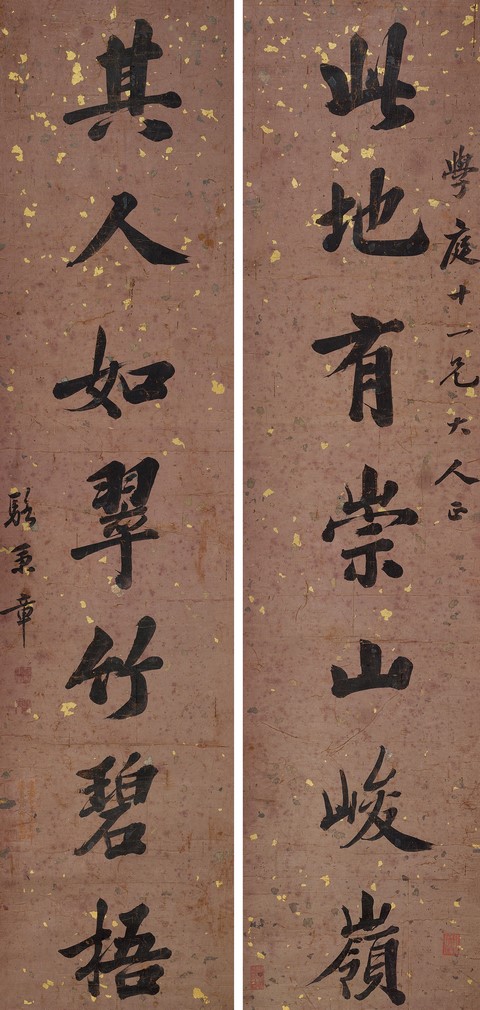 學庭十一兄大人正
此地有崇山峻嶺
其人如翠竹碧梧
駱秉章